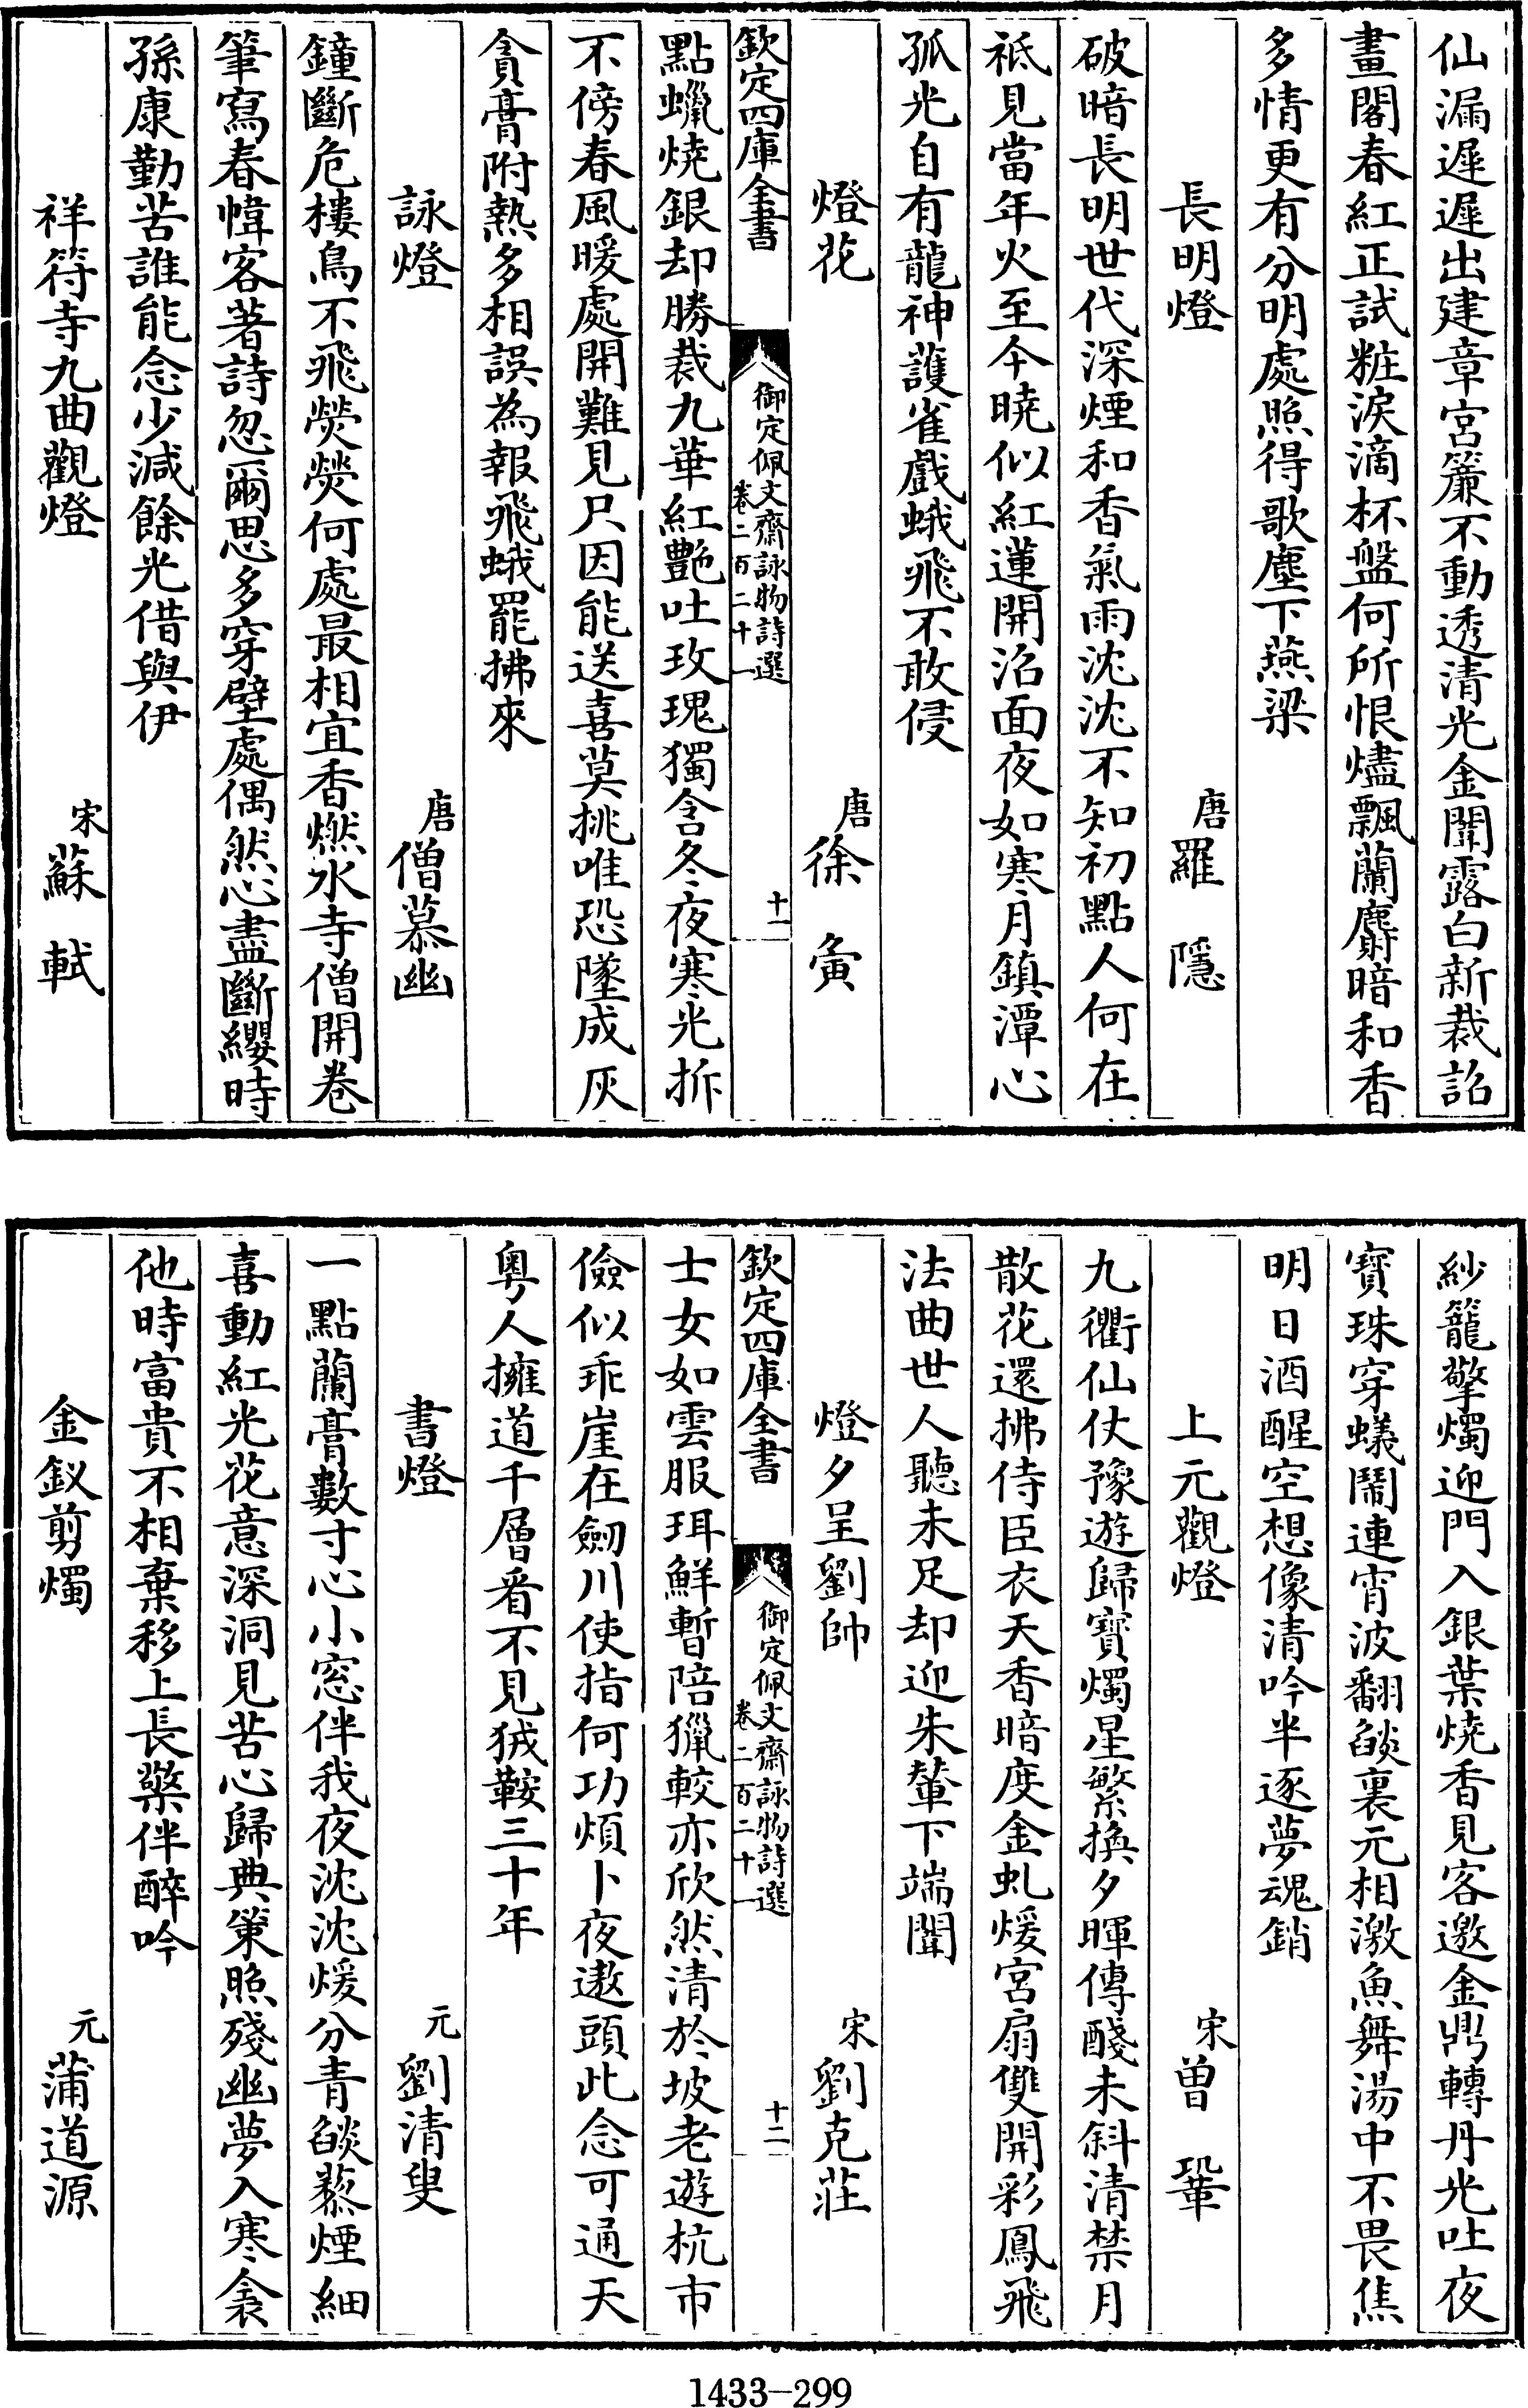 仙漏遲遲出建章宮簾不動透清光金閨露白新裁詔
畫閣春紅正試粧淚滴杯盤何所恨燼飄蘭麝暗和香
多情更有分明處照得歌塵下燕梁
長明燈 唐羅隱
破暗長明世代深煙和香氣雨沈沈不知初點人何在
祗見當年火至今曉似紅蓮開沼面夜如寒月鎮潭心
孤光自有龍神護雀戲蛾飛不敢侵
燈花 唐徐夤
欽定四庫全書 御定佩文齋詠物詩選 卷二百二十一 十一
點蠟燒銀却勝裁九華紅艷吐玫瑰獨含冬夜寒光拆
不傍春風暖處開難見尺因能送喜莫挑唯恐墜成灰
貪膏附熱多相誤為報飛蛾罷拂來
詠燈 唐僧慕幽
鐘斷危樓鳥不飛熒熒何處最相宜香燃水寺僧開卷
筆寫春幃客著詩忽爾思多穿壁處偶然心盡斷纓時
孫康勤苦誰能念少減餘光借與伊
祥符寺九曲觀燈 宋蘇軾
紗籠擎燭迎門入銀葉燒香見客邀金鼎轉丹光吐夜
寶珠穿蟻鬧連宵波翻燄裏元相激魚舞湯中不畏焦
明日酒醒空想像清吟半逐夢魂銷
上元觀燈 宋曾鞏
九衢仙仗豫遊歸寶燭星繁換夕暉傳醆未斜清禁月
散花還拂侍臣衣天香暗度金虬煖宮扇雙開彩鳳飛
法曲世人聽未足却迎朱輦下端闈
燈夕呈劉帥 宋劉克莊
欽定四庫全書 御定佩文齋詠物詩選 卷二百二十一 十二
士女如雲服珥鮮暫陪獵較亦欣然清於坡老遊杭市
儉似乖崖在劒川使指何功煩卜夜遨頭此念可通天
粵人擁道千層看不見狨鞍三十年
書燈 元劉清叟
一點蘭膏數寸心小窓伴我夜沈沈煖分青燄藜煙細
喜動紅光花意深洞見苦心歸典策照殘幽夢入寒衾
他時富貴不相棄移上長檠伴醉吟
金釵剪燭 元蒲道源
1433—299